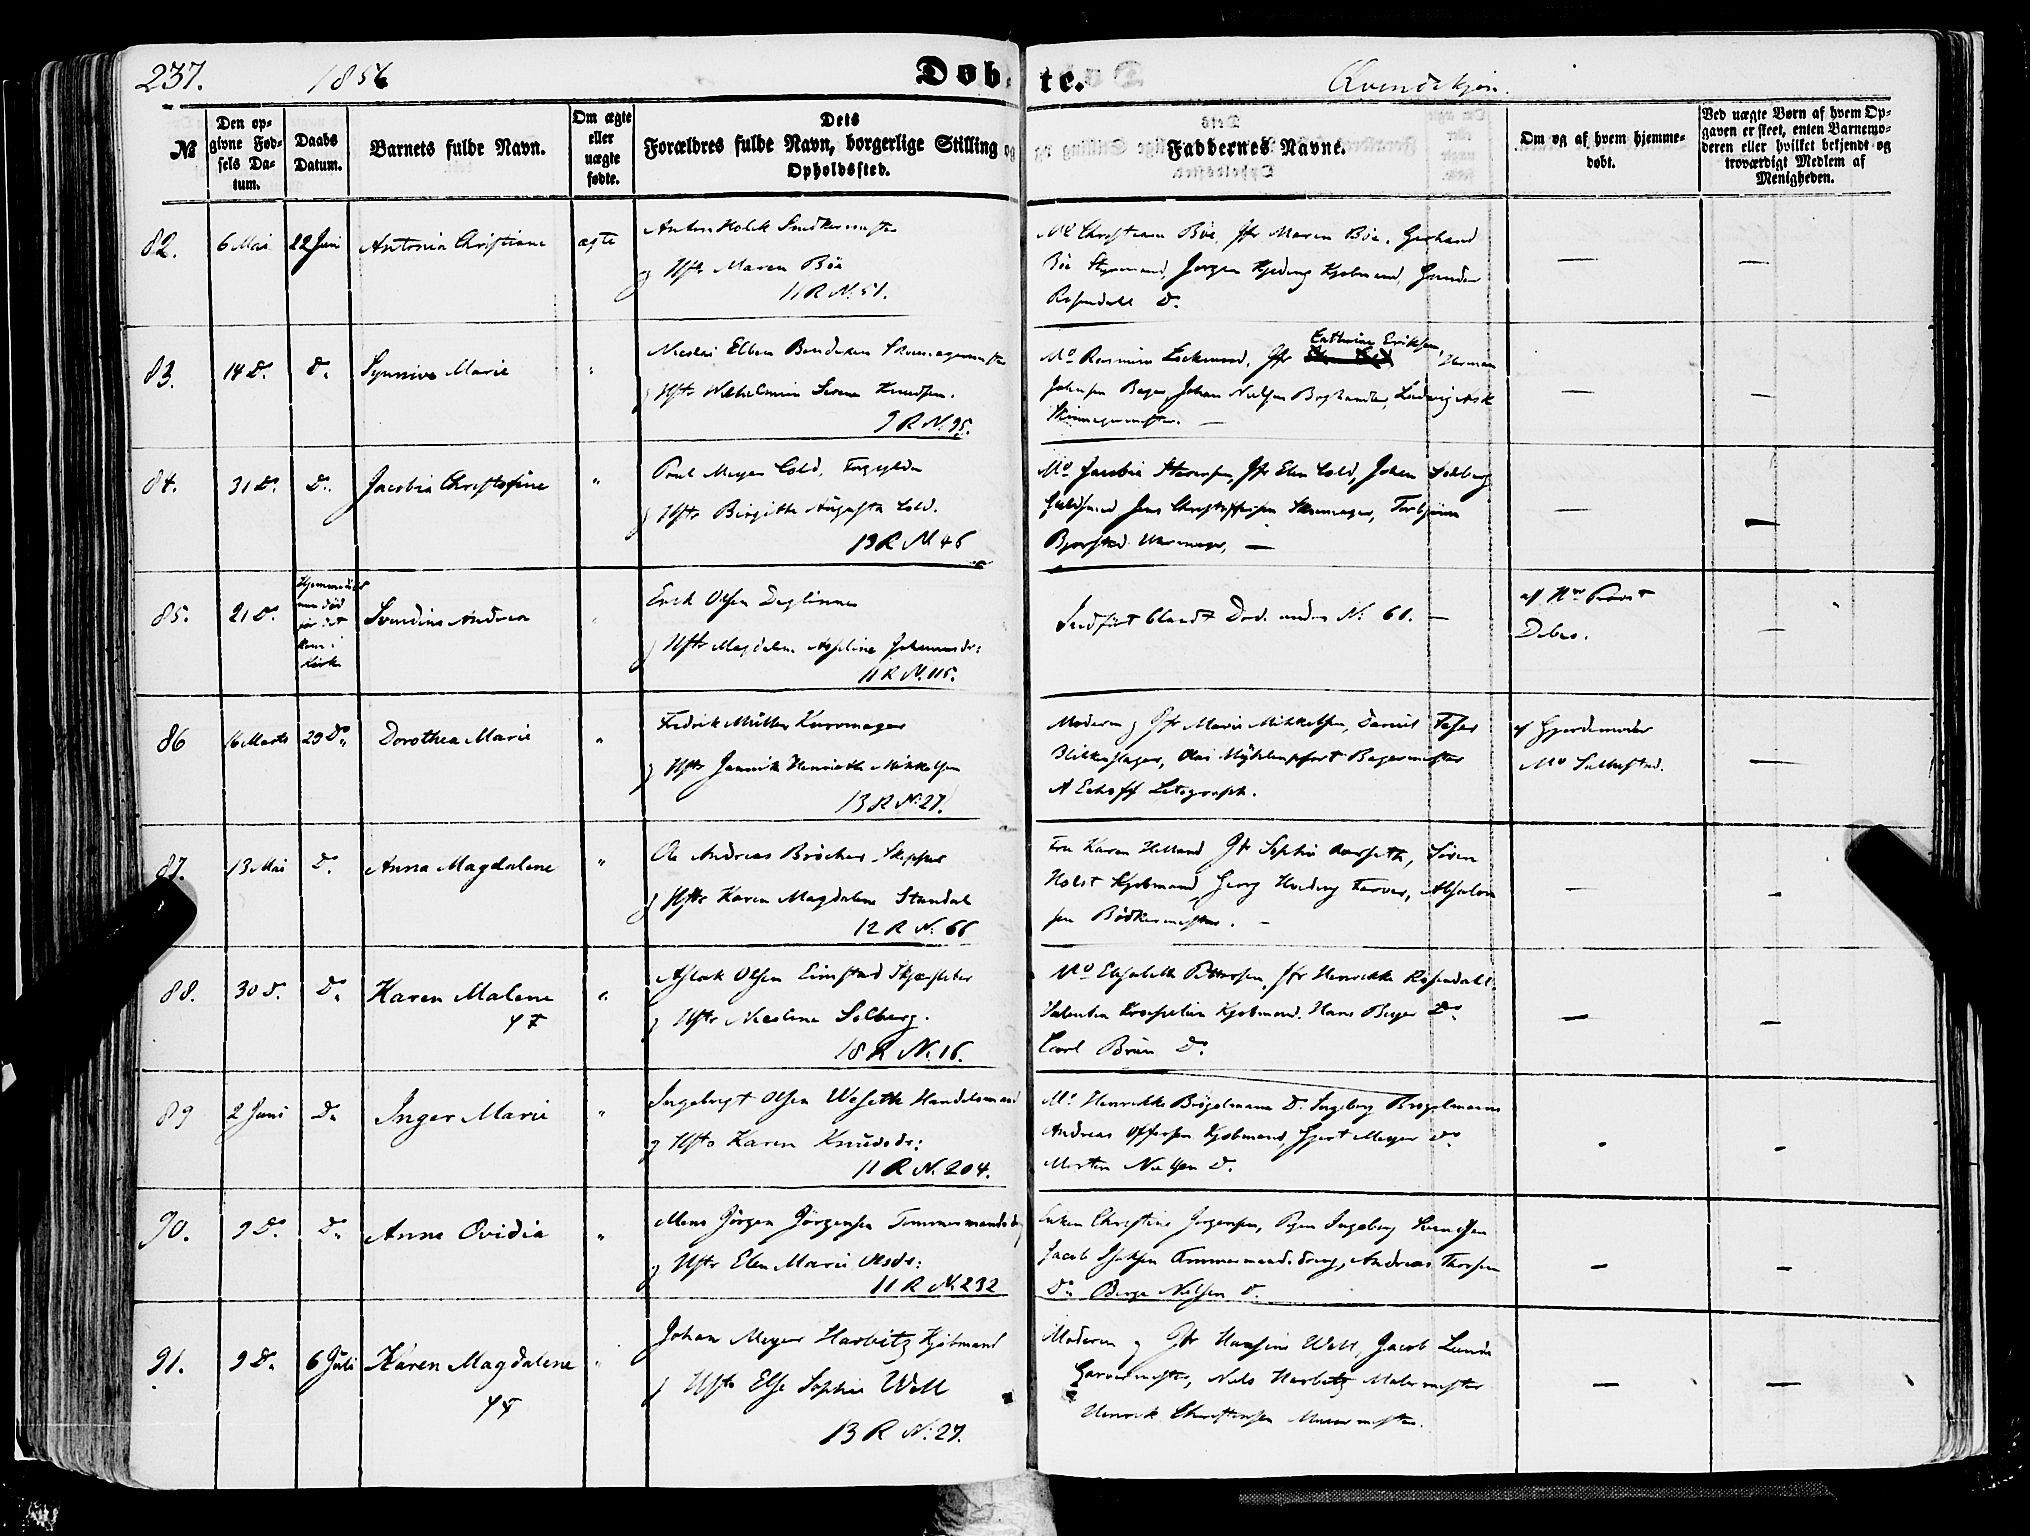 237.
1856
Døb-
te.
Qvendekjøn.
№
Den op-
givne Fød-
sels Da-
tum.
Daabs
Datum.
Barnets fulde Navn.
Om ægte
eller
uægte
fødte.
Dets
Forældres fulde Navn, borgerlige Stilling og
Opholdssted.
Faddernes Navne.
Om og af hvem hjemme-
døbt.
Ved uægte Børn af hvem Op-
gaven er skeet, enten Barnemo-
deren eller hvilket bekjendt og
troværdigt Medlem af
Menigheden.
82.
6 Mai
22 Juni
Antonia Christiane
ægte
Anton Holck
og Hstr Maren Böe
11 R N. 51.
Md Christiane Böe, Jfr Maren Böe, Gerhard
Böe Styrmand, Jørgen Kjøbmand,
Rosendahl Do
83.
14 Do
Do
Synnive Marie
"
Nicolai Skomagermester
og Hstr Wilhelmine Serene Knudsen.
9 R N. 95.
Cathrine Eriksen
Md Rasmine Jfr Herman
Johnsen Bager, Johan Nielsen Boghandler, Ludvig Ask
84.
31 Do
Do
Jacobia Christofine
"
Poul Meyer Cold,
og Hstr Birgitte Augusta Cold.
13 R N 46
Md Jacobia Jfr Elen Cold, Johan Solberg
Guldsmed Jens Skomager, Torbjørn
Bjørstad Uhrmager, —
85.
21 Do
Hjemmedöbt
men död
för det
kom i
Kirke
Andrea
"
Erik Olsen
og Hstr Magdalene Johannesdr:
11 R N. 115.
Indført blandt Død. under No 61. —
af Hr Provst
Debes.
86
16 Marts
29 Do
Dorothea Marie
"
Fredrik Müller Kurvmager
og Hstr Jannik Henriette Mikkelsen
13 R N. 27.
Moderen og Jfr Marie Mikkelsen, Daniel
Blikkenslager, Olai Bagermester
A Eckhoff Litograph.
af Gjordemoder
Md
87.
13 Mai
Do
Anna Magdalene
"
Ole Andreas Bröcher, Skipper
og Hstr Karen Magdalene Standal
12 R N. 66
Fru Karen Jfr Sophie Aarseth, Sören
Holst Kjøbmand, Georg Farver, Absalon
sen Bödkermester. —
88.
30 Do
Do
Karen Malene
Aslak Olsen Eimstad
og Hstr Nicoline Solberg.
18 R N. 16.
Md Elisabeth Pettersen, Jfr Henrikke Rosendahl.
Valentin Kjøbmand. Hans Beyer Do
Carl Brun Do
89
2 Juni
Do
Inger Marie
"
Ingebrigt Olsen Handelsmand
og Hstr Karen Knudsdr:
11 R N. 204.
Md Henrikke Brögelmann Do Ingeborg Brögelmann
Andreas Offersen Kjøbmand, Gjert Meyer Do
Morten Nielsen Do
90.
9 Do
Do
Anne Ovidia
"
Mons Jörgen Jörgensen Tømmermandsdrg
og Hstr Elen Marie Olsdr:
11 R N. 232
Enken Christine Jørgensen, Pigen Ingeborg
Jacob Tømmermandsdreng, Andreas Thorsen
Do Børge Nielsen Do
91.
9 Do
6 Juli
Karen Magdalene
"
Johan Meyer Harbitz Kjöbmand
og Hstr Else Sophie Well
13 R N. 27.
Moderen og Jfr Hansine Well, Jacob Lunde
Garvermester, Niels Harbitz Malermester
Henrik Christensen Murermester.